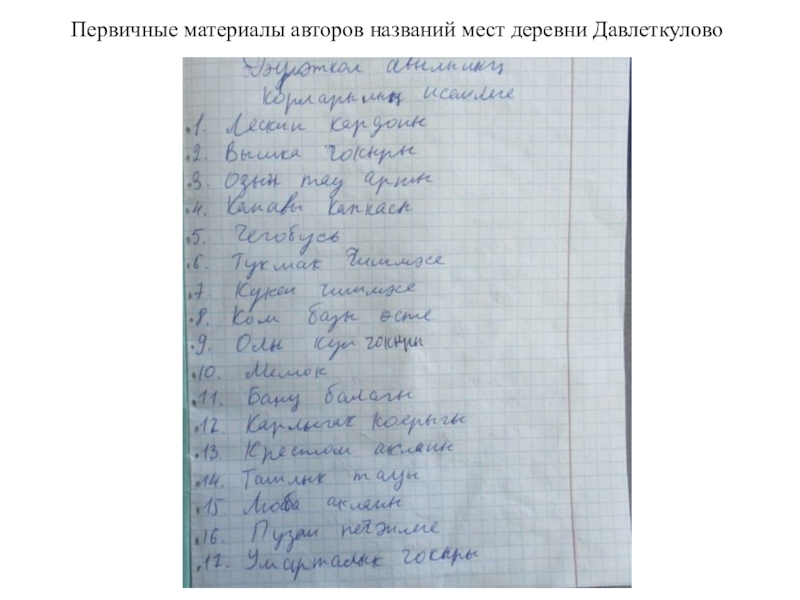 Первичные материалы авторов названий мест деревни Давлеткулово
Дәүләткол авылының
исемлеге
1. Лескин кардоны
2. Вышка чокыры
3. Озын тау арты
4. Канавы капкасы
5. Чегобусь
6. Тукмак чишмәсе
7. Кукей чишмәсе
8. Ком базы өсте
9. Олы күл чокыры
10. Мешок
11. Бану балагы
12. Карлыгач коерыгы
13. Крестом аклаин
14. Ташлык тауы
15 Люба аклаин
16. Пузаи
17. Умарталык чокыры